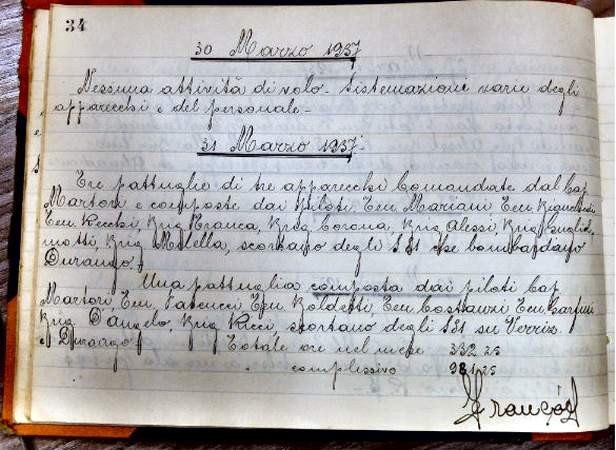 34
30 Marzo 1937
Nessuna attività di volo - Sistemazioni varie degli
apparecchi e del personale -
31 Marzo 1937 -
Tre pattuglie di tre apparecchi Comandate dal Cap
Martori e composte dai piloti Ten Mariani Ten
Ten Recchi, Brig Branca, Brig Corona, Brig Alessi, Brig Guglie
motti, Brig Milella, scortano degli S81 che bombardano
Durango.
Una pattuglia composta dai piloti Cap
Martori Ten Ten Ten Costanzi Ten
Brig D'Angelo, Brig Ricci, scortano degli S81 su
e Durango Totale ore nel mese 332 25
" complessivo 981 25
François